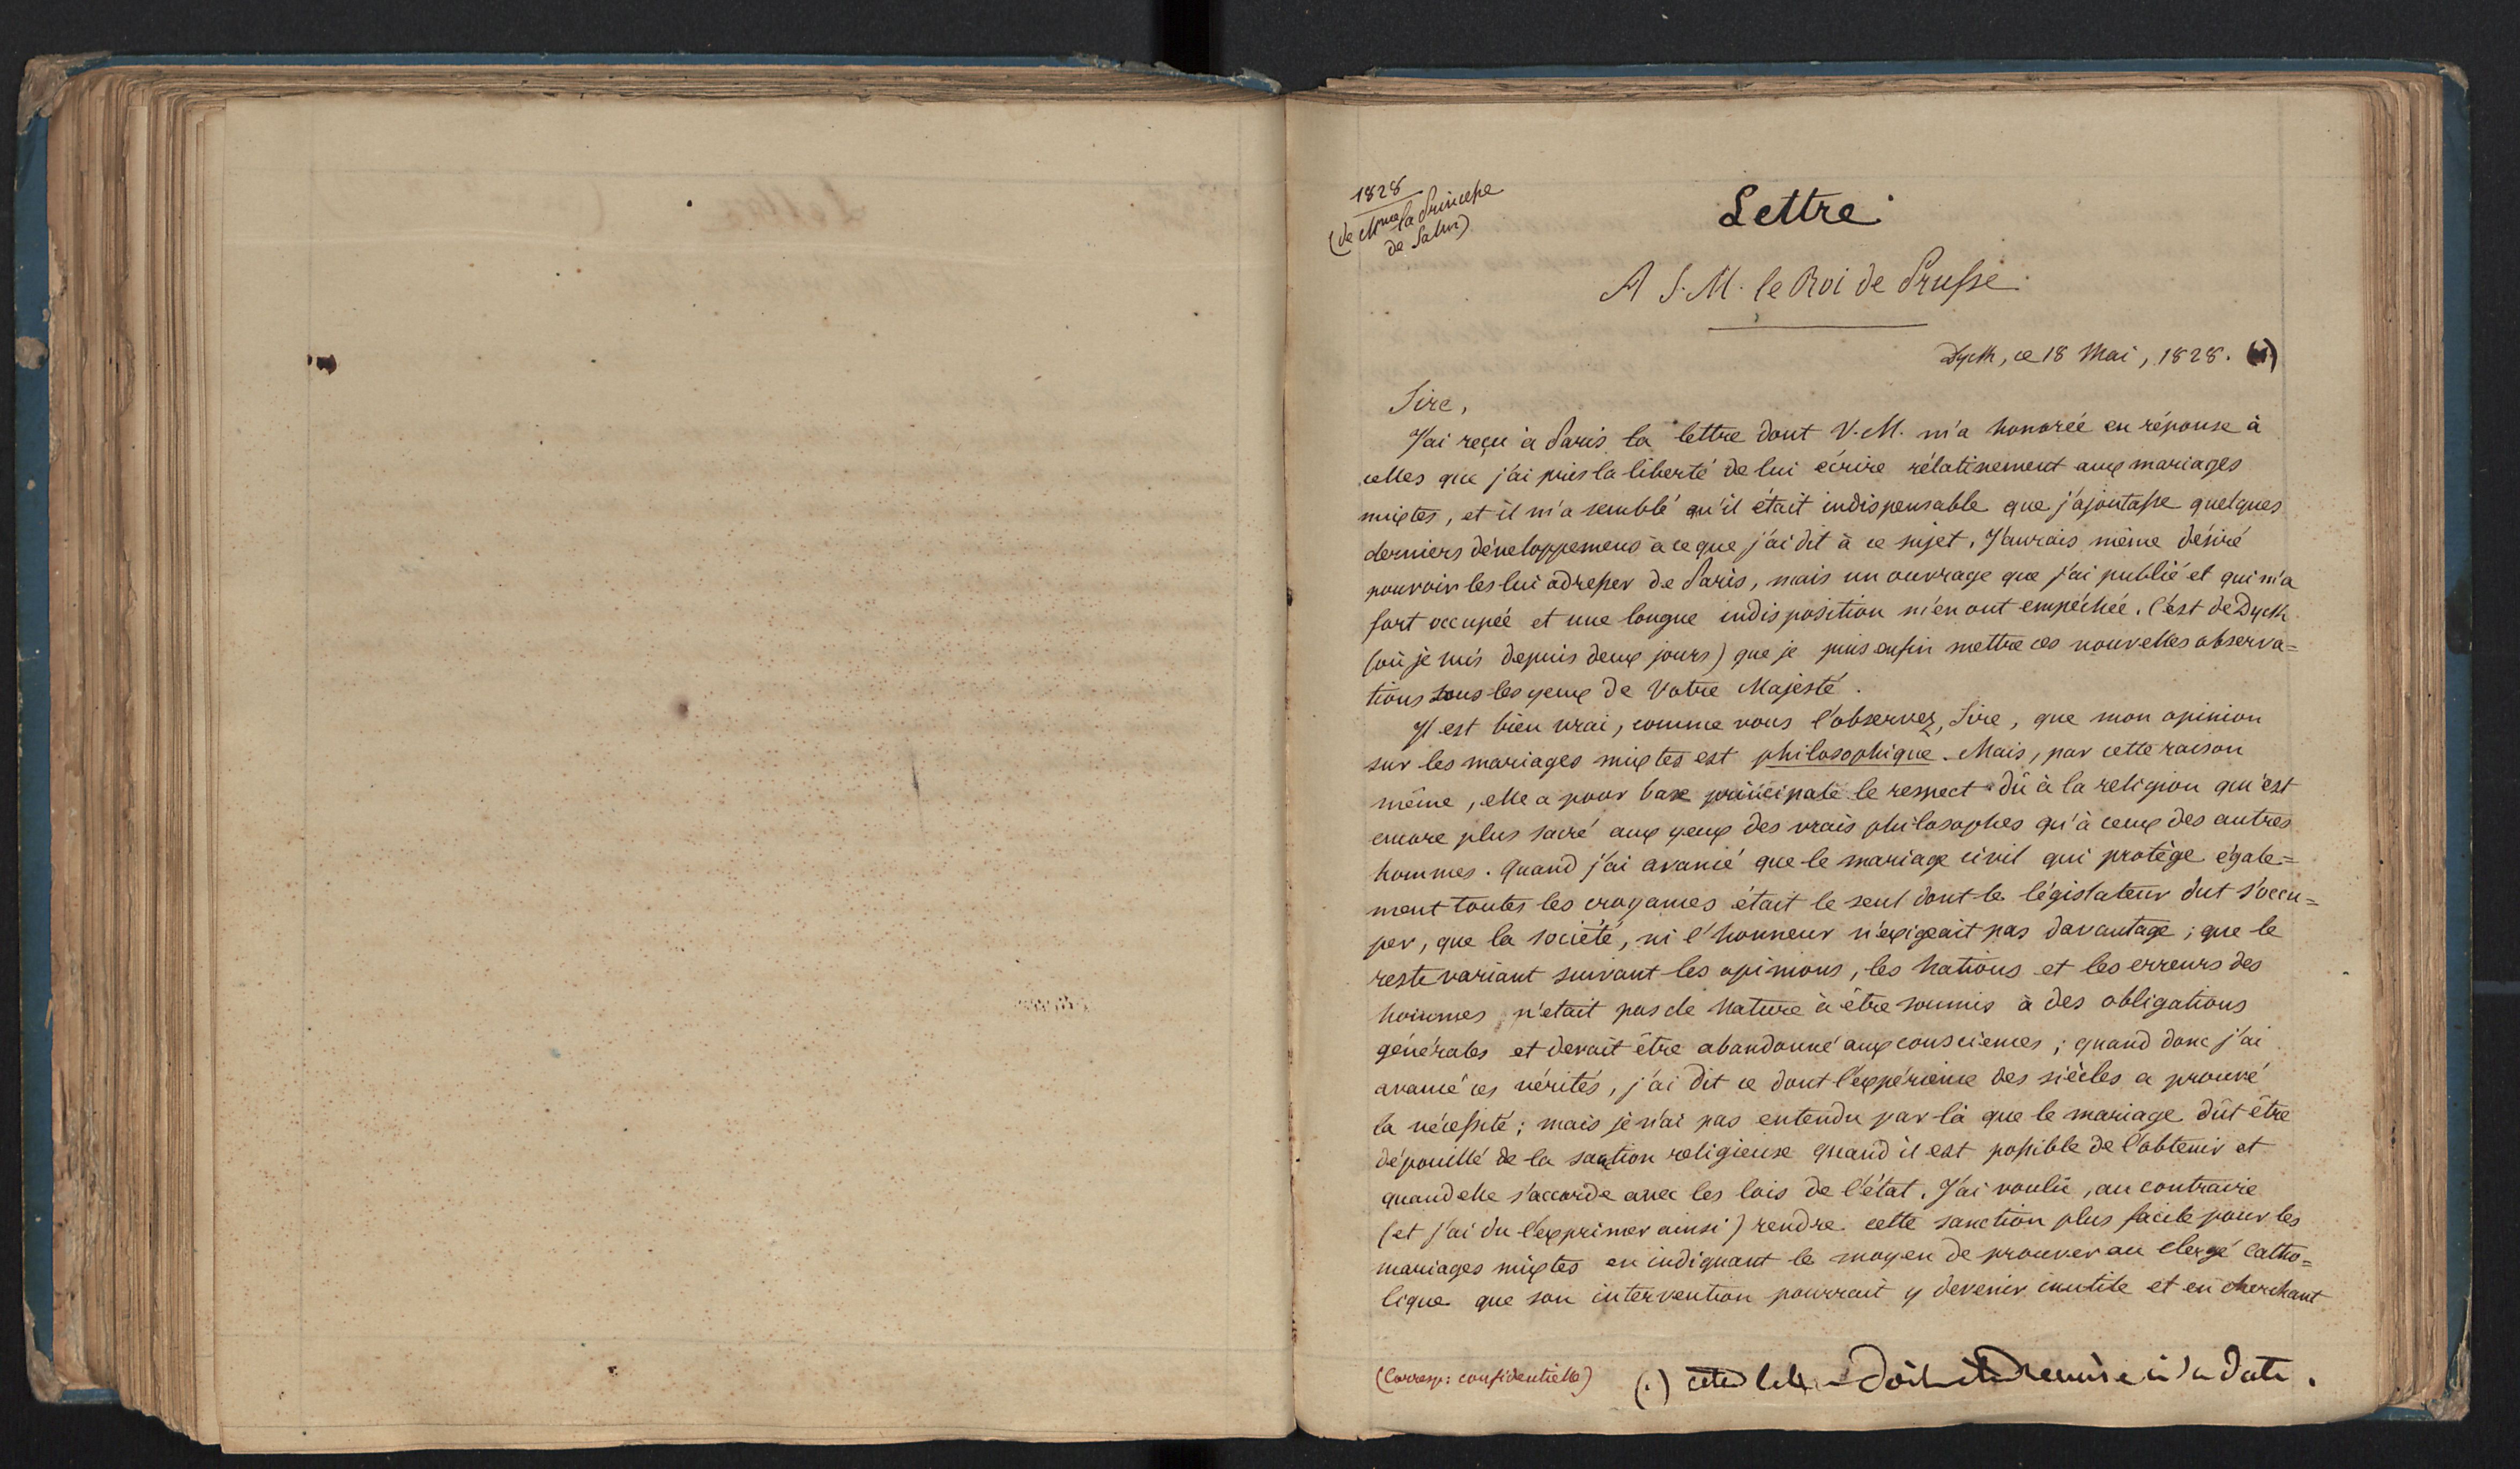 1828
(de Mme la Princesse
de Salm)
Lettre
A S. M. le Roi de Prusse.
Dyck, ce 18 Mai, 1828. (1)
Sire,
J'ai reçu à Paris la lettre dont V. M. m'a honorée en réponse à
celles que j'ai pris la liberté de lui écrire rélativement aux mariages
mixtes, et il m'a semblé qu'il était indispensable que j'ajoutasse quelques
derniers développemens à ce que j'ai dit à ce sujet. J'aurais même désiré
pouvoir les lui adresser de Paris, mais un ouvrage que j'ai publié et qui m'a
fort occupée et une longue indisposition m'en ont empéchée. C'est de Dyck
(où je suis depuis deux jours) que je puis enfin mettre ces nouvelles observa=
tions sous les yeux de Votre Majesté.
Il est bien vrai, comme vous l'observez, Sire, que mon opinion
sur les mariages mixtes est philosophique. Mais, par cette raison
même, elle a pour base principale le respect dû à la religion qu'est
encore plus sacré aux yeux des vrais philosophes qu'à ceux des autres
hommes. Quand j'ai avancé que le mariage civil qui protège égale=
ment toutes les croyances était le seul dont le législateur dut s'occu=
per, que la société, ni l'honneur n'exigeait pas davantage; que le
reste variant suivant les opinions, les nations et les erreurs des
hommes n'était pas de nature à être soumis à des obligations
générales et devait être abandonné aux consciences; quand donc j'ai
avancé ces vérités, j'ai dit ce dont l'expérience des siècles a prouvé
la nécessité; mais je n'ai pas entendu par là que le mariage dût être
dépouillé de la sanction religieuse quand il est possible de l'obtenir et
quand elle s'accorde avec les lois de l'état. J'ai voulu, au contraire
(et j'ai du l'exprimer ainsi) rendre cette sanction plus facile pour les
mariages mixtes en indiquant le moyen de prouver au clergé catho=
lique que son intervention pourrait y devenir inutile et en cherchant
(Corresp: confidentielle)
(.) cette lettre doit être remise à sa date.